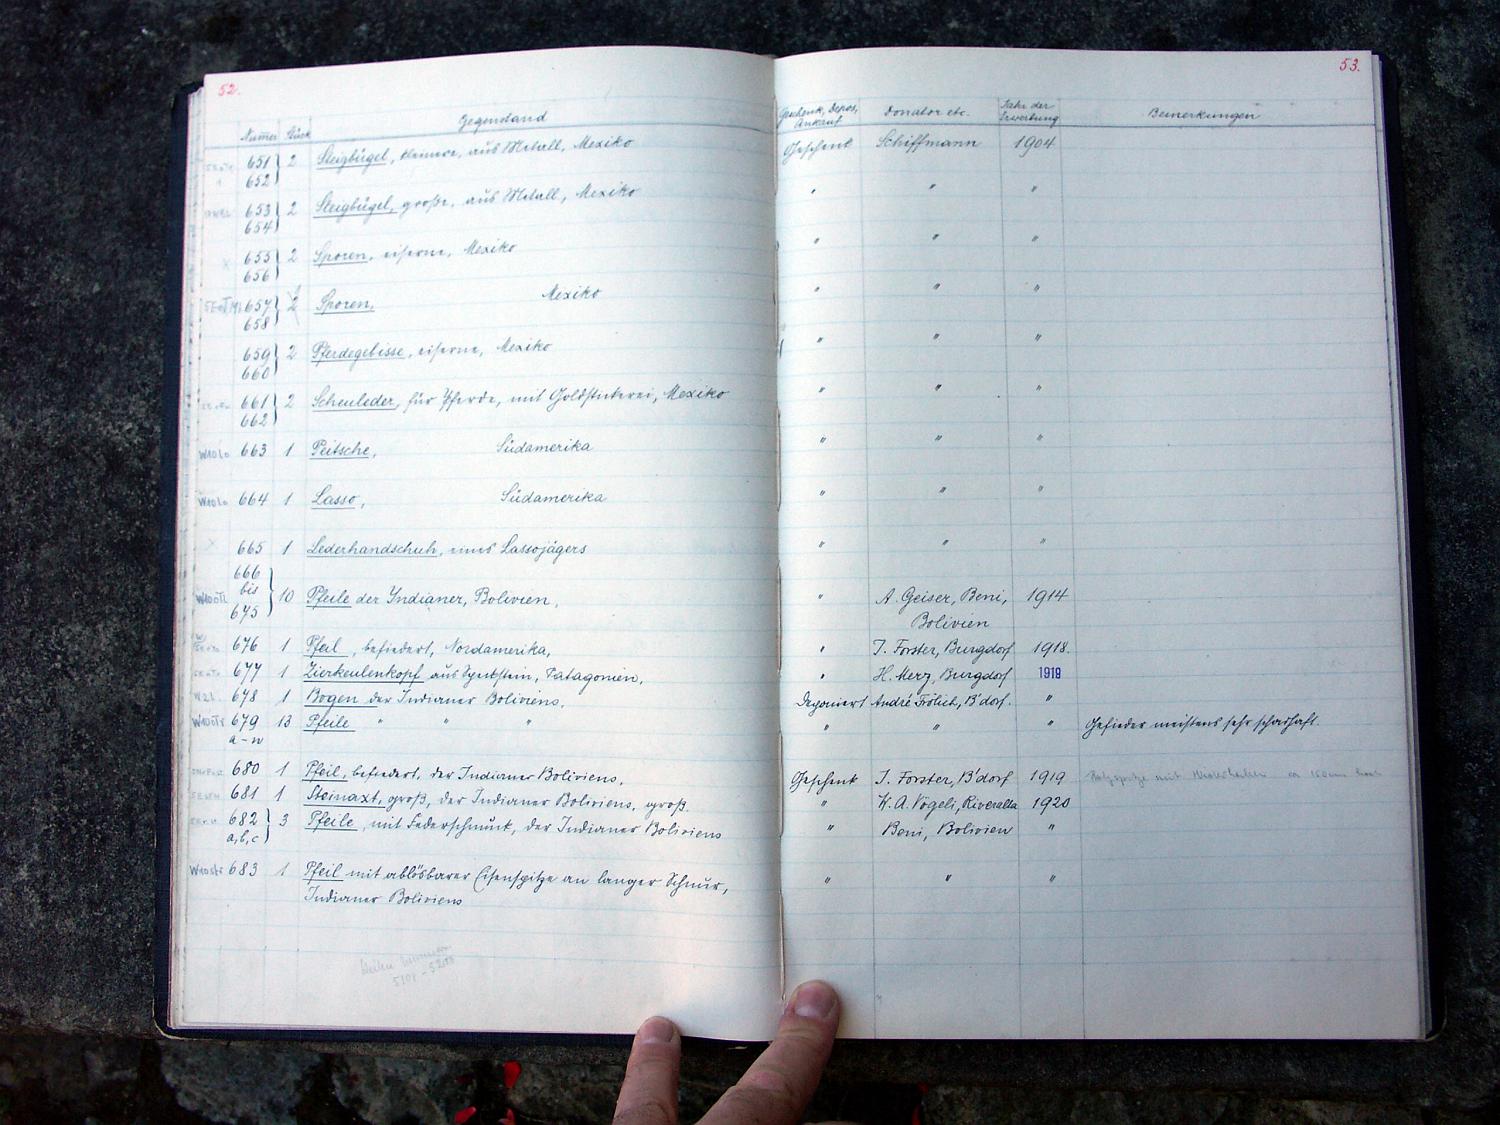 52.
53.
Numer Stück Gegenstand Geschenk, Depos, Ankauf Donator etc. Jahr der Erwerbung Bemerkungen
651 652 2 Steigbügel, kleinere, aus Metall, Mexiko Geschenk Schiffmann 1904
653 654 2 Steigbügel, große, aus Metall, Mexiko " " "
655 656 2 Sporen, eiserne, Mexiko " " "
657 658 2 Sporen, Mexiko " " "
659 660 2 Pferdegebisse, eiserne, Mexiko " " "
661 662 2 Scheuleder, für Pferde, mit Goldstickerei, Mexiko " " "
663 1 Peitsche, Südamerika " " "
664 1 Lasso, Südamerika " " "
665 1 Lederhandschuh, eines Lassojägers " " "
666 bis 675 10 Pfeile der Indianer, Bolivien, " A. Geiser, Beni, 1914
Bolivien
676 1 Pfeil, befiedert, Nordamerika, " J. Forster, Burgdorf 1918
677 1 Zierkeulenkopf aus Speckstein, Patagonien, " H. Merz, Burgdorf 1919
678 1 Bogen der Indianer Boliviens, Deponiert André Frölich, B'dorf. "
679 13 Pfeile " " " " " " Gefieder meistens sehr schadhaft.
a-n
680 1 Pfeil, befiedert, der Indianer Boliviens, Geschenk J. Forster, B'dorf 1919
681 1 Steinaxt, groß, der Indianer Boliviens, groß. " W. A. Vögeli, Riveralta 1920
682 a,b,c 3 Pfeile, mit Federschmuck, der Indianer Boliviens " Beni, Bolivien "
683 1 Pfeil mit ablösbarer Eisenspitze an langer Schnur, " " "
Indianer Boliviens